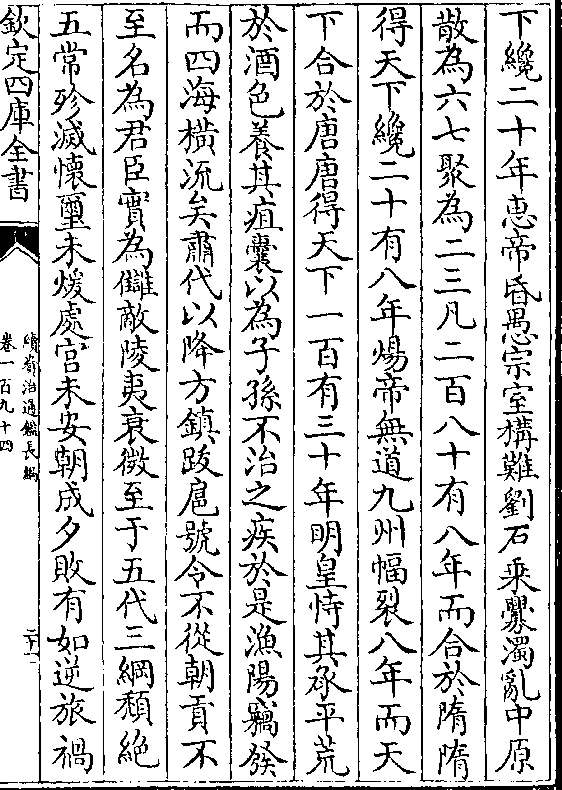 下纔二十年惠帝昏愚宗室構難劉石乘釁濁亂中原
散為六七聚為二三凡二百八十有八年而合於隋隋
得天下纔二十有八年煬帝無道九州幅裂八年而天
下合於唐唐得天下一百有三十年明皇恃其承平荒
於酒色養其疽囊以為子孫不治之疾於是漁陽竊發
而四海橫流矣肅代以降方鎮跋扈號令不從朝貢不
至名為君臣實為讎敵陵夷衰微至于五代三綱頽絶
五常殄滅懷璽未煖處宮未安朝成夕敗有如逆旅禍
欽定四庫全書
續資治通鑑長編
卷一百九十四
二十一